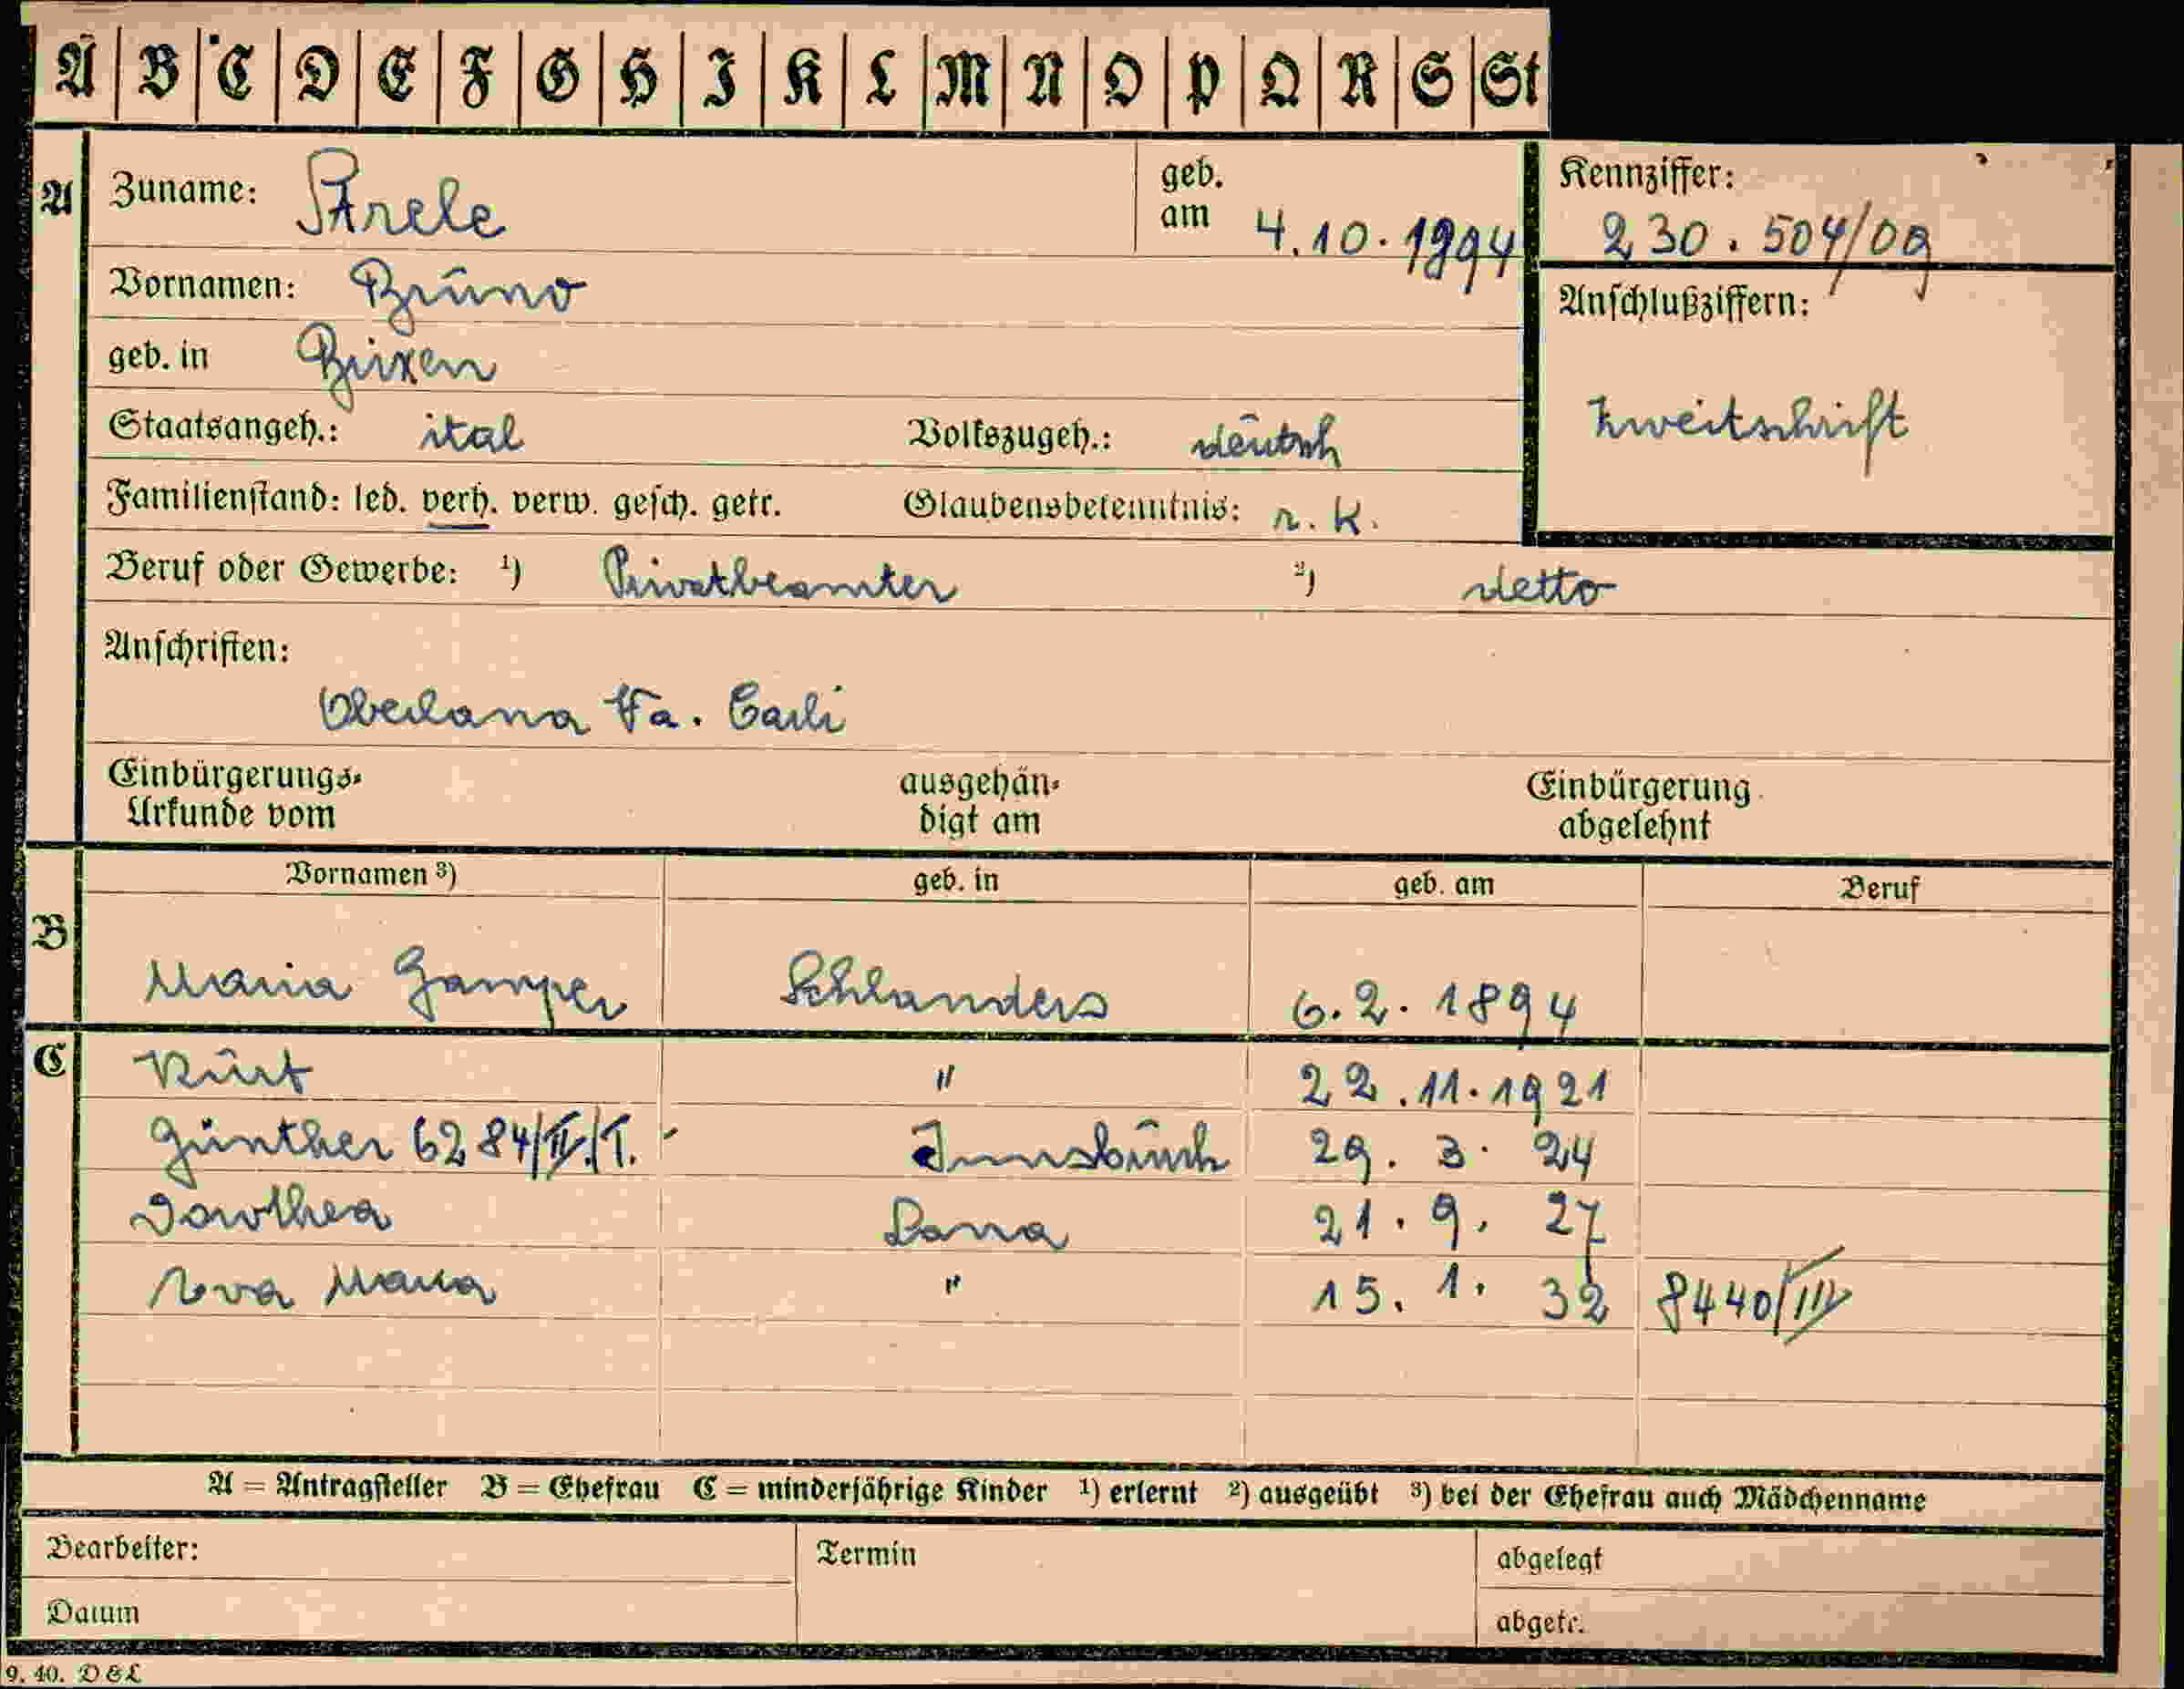 A B C D E F G H I K L M N O P Q R S St
A Zuname: Strele geb. am 4.10.1894 Kennziffer: 230.504/09
Vornamen: Bruno Anschlußziffern:
geb. in Brixen
Staatsangeh.: ital Volkszugeh.: deutsch Zweitschrift
Familienstand: led. verh. verw. gesch. getr. Glaubensbekenntnis: r. k.
Beruf oder Gewerbe: ¹) Privatbeamter ²) detto
Anschriften:
Oberlana Fa. Carli
Einbürgerungs- ausgehän- Einbürgerung
Urkunde vom digt am abgelehnt
Vornamen ³) geb. in geb. am Beruf
B
Maria Gamper Schlanders 6.2.1894
C Kurt " 22.11.1921
Günther 6284/IV./T. Innsbruck 29. 3. 24
Dorothea Lana 21. 9. 27
Eva Maria " 15. 1. 32 8440/III
A = Antragsteller B = Ehefrau C = minderjährige Kinder ¹) erlernt ²) ausgeübt ³) bei der Ehefrau auch Mädchenname
Bearbeiter: Termin abgelegt
Datum abgetr.
9. 40. D & L